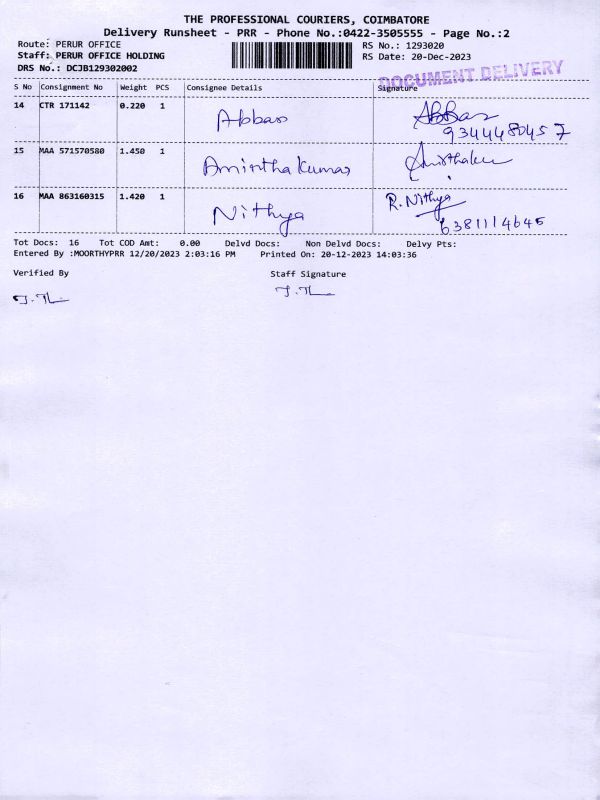 THE PROFESSIONAL COURIERS, COIMBATORE
Delivery Runsheet - PRR - Phone No.:0422-3505555 - Page No.:2
Route: PERUR OFFICE RS No.: 1293020
Staff: PERUR OFFICE HOLDING RS Date: 20-Dec-2023
DRS No.: DCJB129302002
DOCUMENT DELIVERY
S No Consignment No Weight PCS Consignee Details Signature
14 CTR 171142 0.220 1 Abbas ABBas
9344480457
15 MAA 571570580 1.450 1 Amirtha Kumar
16 MAA 863160315 1.420 1 Nithya R. Nithya
6381114645
Tot Docs: 16 Tot COD Amt: 0.00 Delvd Docs: Non Delvd Docs: Delvy Pts:
Entered By :MOORTHYPRR 12/20/2023 2:03:16 PM Printed On: 20-12-2023 14:03:36
Verified By Staff Signature